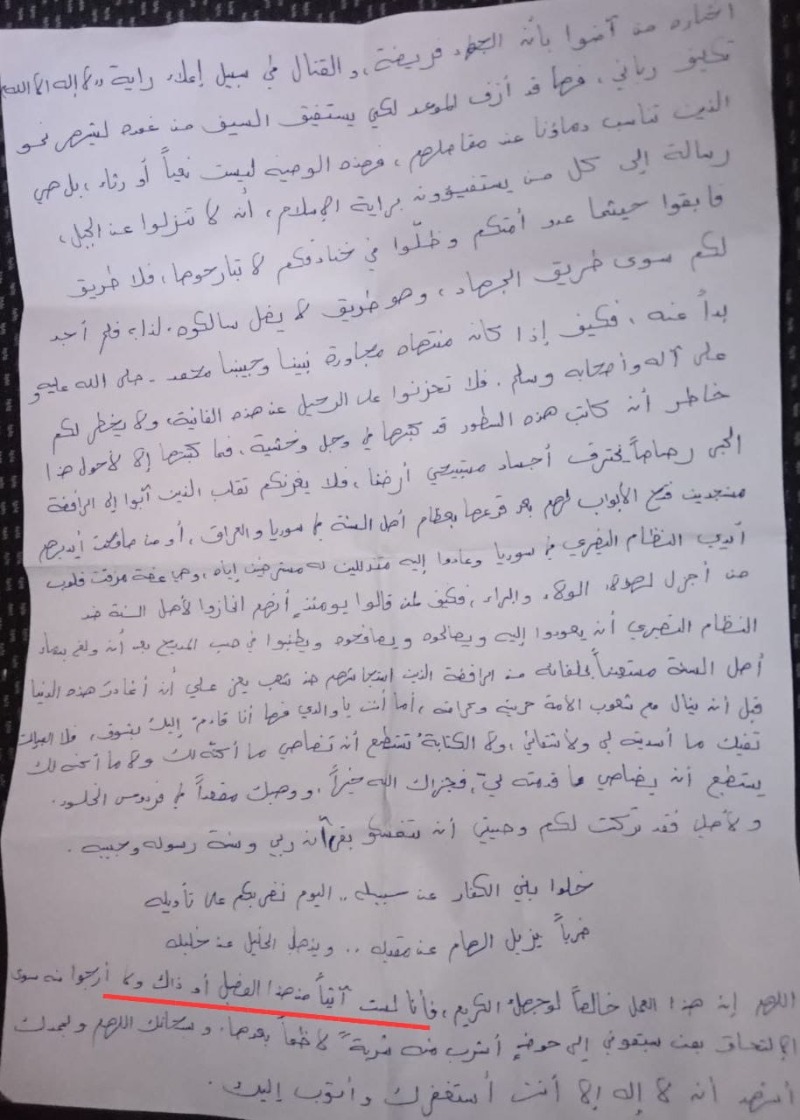 اختاره من آمنوا بأن الجهاد فريضة، والقتال في سبيل إعلاء راية "لا إله إلا الله"
تكليف رباني، فها قد أزف الموعد لكي يستفيق السيف من غمده ليتجه نحو
الذين تناسب دماؤنا عند مقاصلهم، فهذه الوصية ليست نعياً أو رثاء، بل هي
رسالة إلى كل من يستفيؤون براية الإسلام، أن لا تنزلوا عن الجبل،
فابقوا حيثما عدو أمتكم وظلّوا في خنادقكم لا تبارحوها، فلا طريق
لكم سوى طريق الجهاد، وهو طريق لا يضل سالكوه، لذا، فلم أجد
بداً عنه، فكيف إذا كان منتهاه مجاورة نبينا وحبيبنا محمد - صلى الله عليه و
على آله وأصحابه وسلم. فلا تحزنوا على الرحيل عن هذه الفانية، ولا يخطر لكم
خاطر أن كاتب هذه السطور قد كتبها في وجل وخشية، فما كتبها إلا لأحول هذا
الحبر رصاصاً يخترق أجساد مستبيحي أرضنا، فلا يغرنكم تقلب الذين آبوا إلى الرافضة
مستجدين فتح الأبواب لهم بعد قرعها بعظام أهل السنة في سوريا والعراق، أو من صافحت أيديهم
أيدي النظام النصيري في سوريا وعادوا إليه متذللين له مسترضين إياه، وهي غصة مزقت قلوب
من أجزل لهؤلاء الولاء والبراء، فكيف لمن قالوا يومئذٍ أنهم انحازوا لأهل السنة ضد
النظام النصيري أن يعودوا إليه ويصالحوه ويصافحوه ويطنبوا في صب المديح بعد أن ولغ بدماء
أهل السنة مستعيناً بحلفائه من الرافضة الذين استجاشهم ضد شعب يعز علي أن أغادر هذه الدنيا
قبل أن ينال مع شعوب الأمة حريته وكرامته، أما أنت يا والدي فها أنا قادم إليك بشوق، فلا العبارات
تفيك ما أسديته لي ولأشقائي، ولا الكتابة تستطيع أن تضاهي ما أكنه لك ولا ما أكنه لك
يستطيع أن يضاهي ما قدمته لي، فجزاك الله خيراً، ووهبك مقعداً في فردوس الخلود.
ولأهلي فقد تركت لكم وصيتي أن تتمسكوا بقرآن ربي وسنة رسوله وحبيبه.
خلوا بني الكفار عن سبيله .. اليوم نضربكم على تأويله
ضرباً يزيل الهام عن مقيله .. ويذهل الخليل عن خليله
اللهم إن هذا العمل خالصاً لوجهك الكريم، فأنا لست آتياً من هذا الفصيل أو ذاك ولا أرجوا منه سوى
الإلتحاق بمن سبقوني إلى حوضٍ أشرب منه شربةً لا ظمأ بعدها. وسبحانك اللهم وبحمدك
أشهد أن لا إله إلا أنت أستغفرك وأتوب إليك.